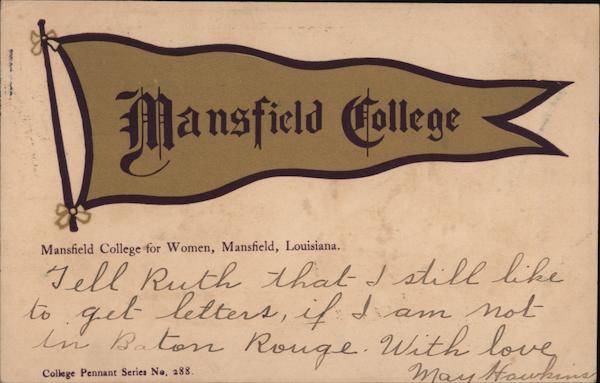 Mansfield College
Mansfield College for Women, Mansfield, Louisiana.
Tell Ruth that I still like
to get letters, if I am not
in Baton Rouge. With love
May Hawkins
College Pennant Series No. 288.